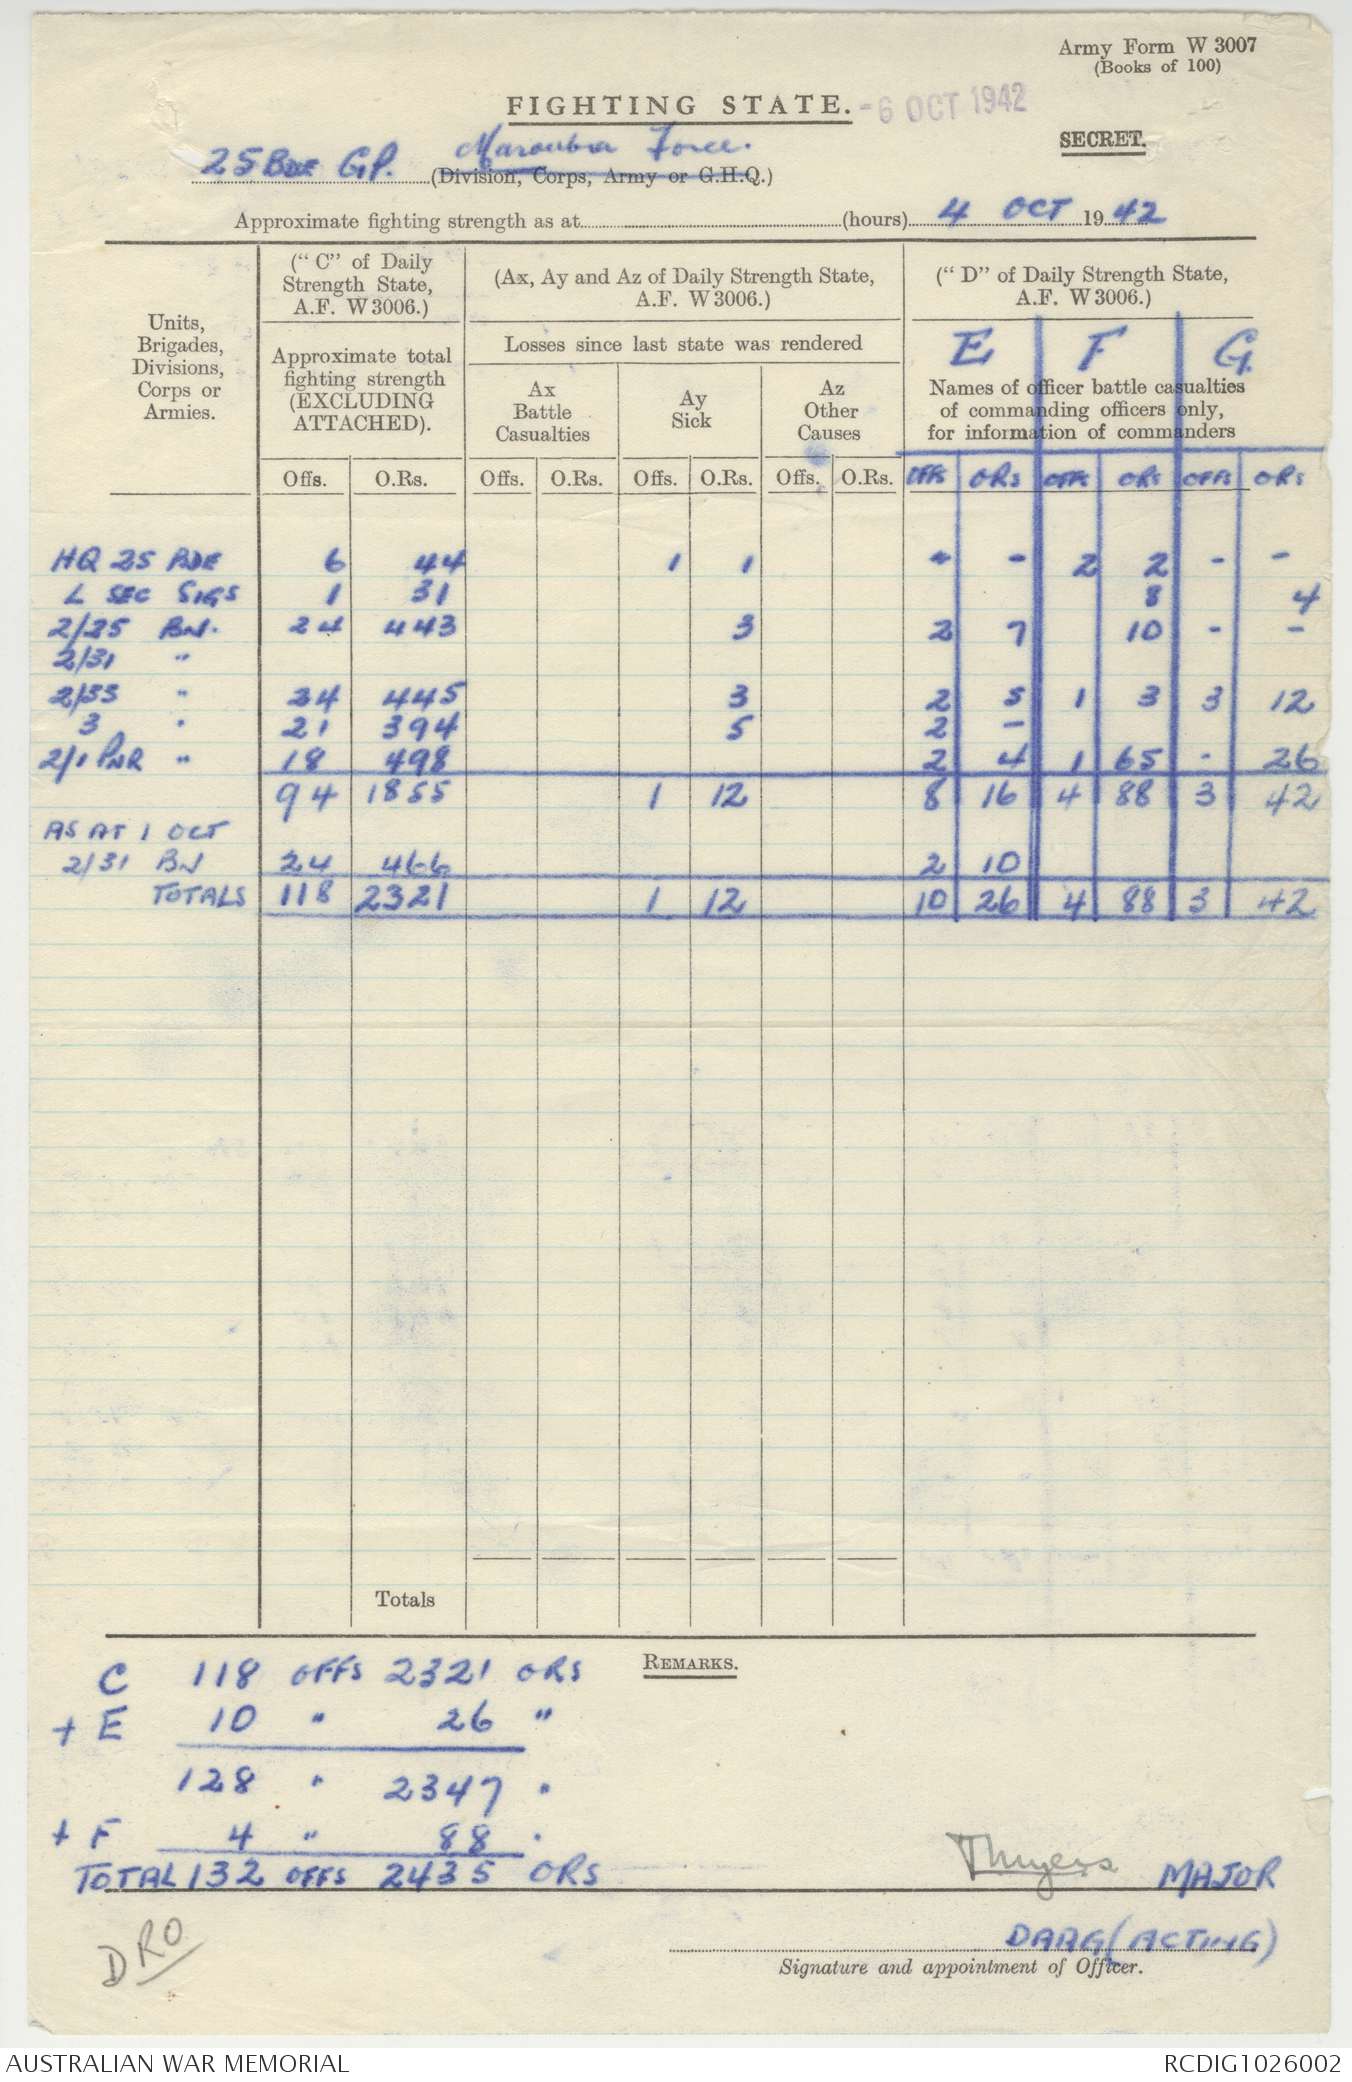 Army Form W 3007
(Books of 100)
FIGHTING STATE.
-6 OCT 1942
SECRET.
25 BDE GP. Maroubra Force.
(Division, Corps, Army or G.H.Q.)
Approximate fighting strength as at (hours) 4 OCT 1942
Units, Brigades, Divisions, Corps or Armies.
("C" of Daily Strength State, A.F. W 3006.)
Approximate total fighting strength (EXCLUDING ATTACHED).
(Ax, Ay and Az of Daily Strength State, A.F. W 3006.)
Losses since last state was rendered
Ax Battle Casualties
Ay Sick
Az Other Causes
("D" of Daily Strength State, A.F. W 3006.)
E F G.
Names of officer battle casualties of commanding officers only, for information of commanders
Offs. O.Rs. Offs. O.Rs. Offs. O.Rs. Offs. O.Rs. OFFS ORs OFFS ORs OFFS ORs
HQ 25 BDE 6 44 1 1 - - 2 2 - -
L SEC SIGS 1 31 8 4
2/25 BN. 24 443 3 2 7 10 - -
2/31 "
2/33 " 24 445 3 2 5 1 3 3 12
3 " 21 394 5 2 -
2/1 PNR " 18 498 2 4 1 65 - 26
94 1855 1 12 8 16 4 88 3 42
AS AT 1 OCT
2/31 BN 24 466 2 10
TOTALS 118 2321 1 12 10 26 4 88 3 42
Totals
REMARKS.
C 118 OFFS 2321 ORS
+ E 10 " 26 "
128 " 2347 "
+ F 4 " 88 "
TOTAL 132 OFFS 2435 ORS
MAJOR
DAAG (ACTING)
Signature and appointment of Officer.
DRO
AUSTRALIAN WAR MEMORIAL RCDIG1026002